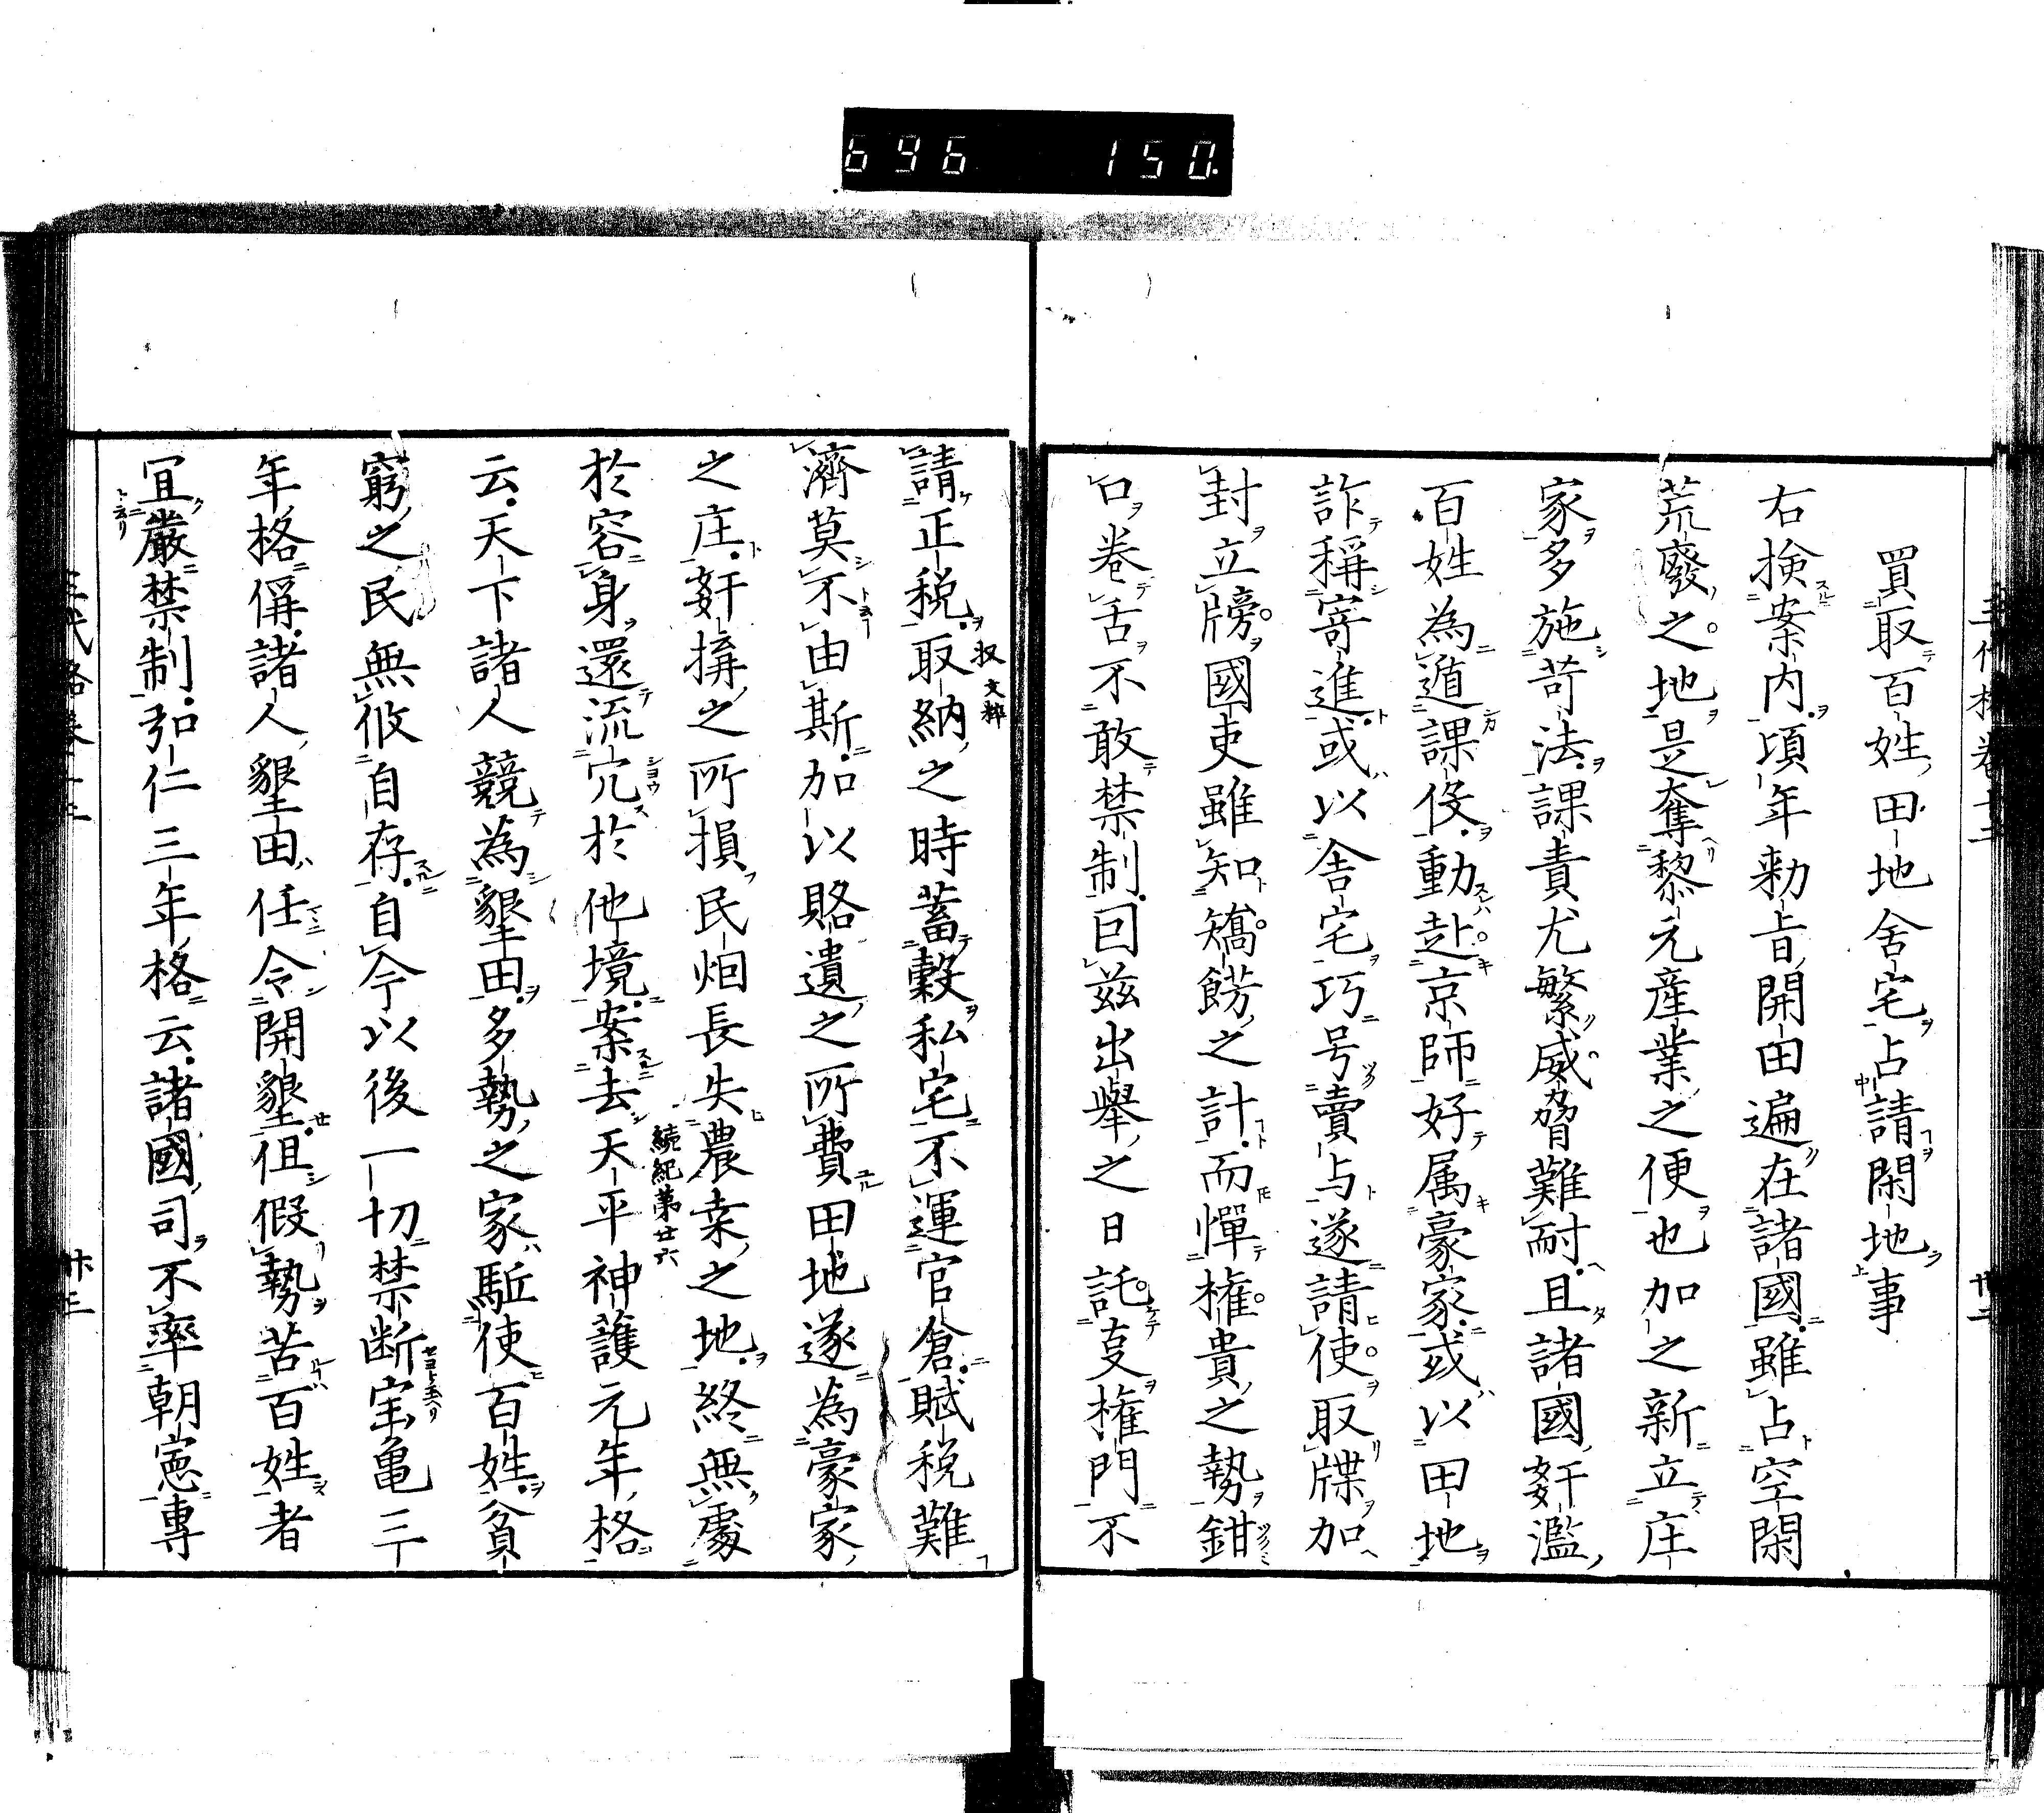 696 150.
三代格卷十二 廿二
買取百姓田地舍宅占請閑地事
右検案内頃年勅旨開田遍在諸國雖占空閑
荒廢之地是奪黎元産業之便也加之新立庄
家多施苛法課責尤繁威脅難耐且諸國奸濫
百姓為遁課伇動赴京師好属豪家或以田地
詐稱寄進或以舍宅巧号賣与遂請使取牒加
封立牓國吏雖知矯餝之計而憚権貴之勢鉗
口巻舌不敢禁制囙茲出舉之日託㕝権門不
請正税取納之時蓄穀私宅不運官倉賦税難
収文粹
濟莫不由斯加以賂遺之所費田地遂為豪家
之庄奸搆之所損民烟長失農桒之地終無處
於容身還流宂於他境案去天平神護元年格
続紀第廿六
云天下諸人競為墾田多勢之家駈使百姓貧
窮之民無㣲自存自今以後一切禁断宝亀三
年格偁諸人墾田任令開墾但假勢苦百姓者
宜嚴禁制弘仁三年格云諸國司不率朝憲専
三代格卷十二 廿三